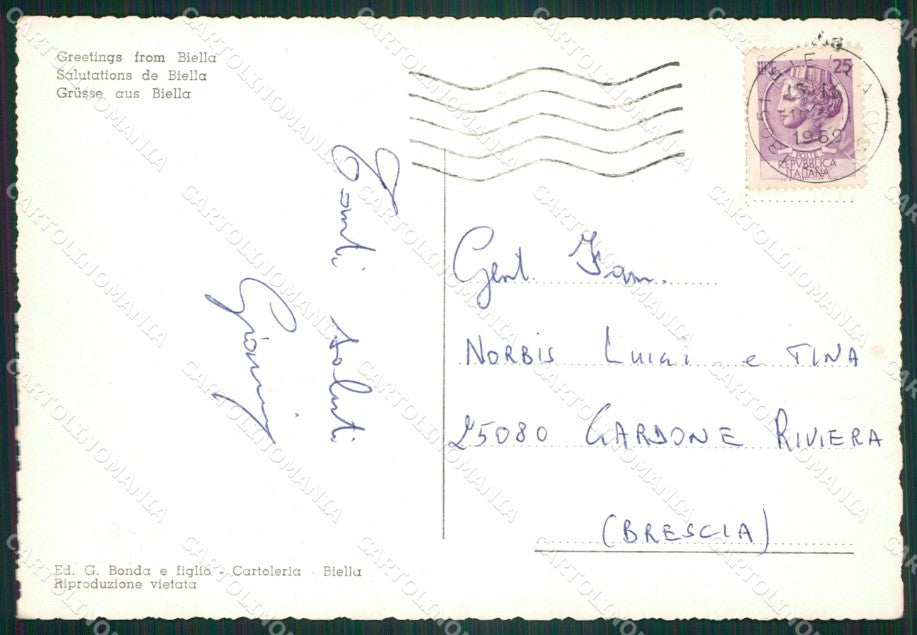 Greetings from Biella
Salutations de Biella
Grüsse aus Biella
Tanti saluti
LIRE 25
1969
POSTE
REPVBBLICA
ITALIANA
Gent. Fam.
NORBIS LUIGI e TINA
25080 GARDONE RIVIERA
(BRESCIA)
Ed. G. Bonda e figlio - Cartoleria - Biella
Riproduzione vietata
CARTOLINOMANIA